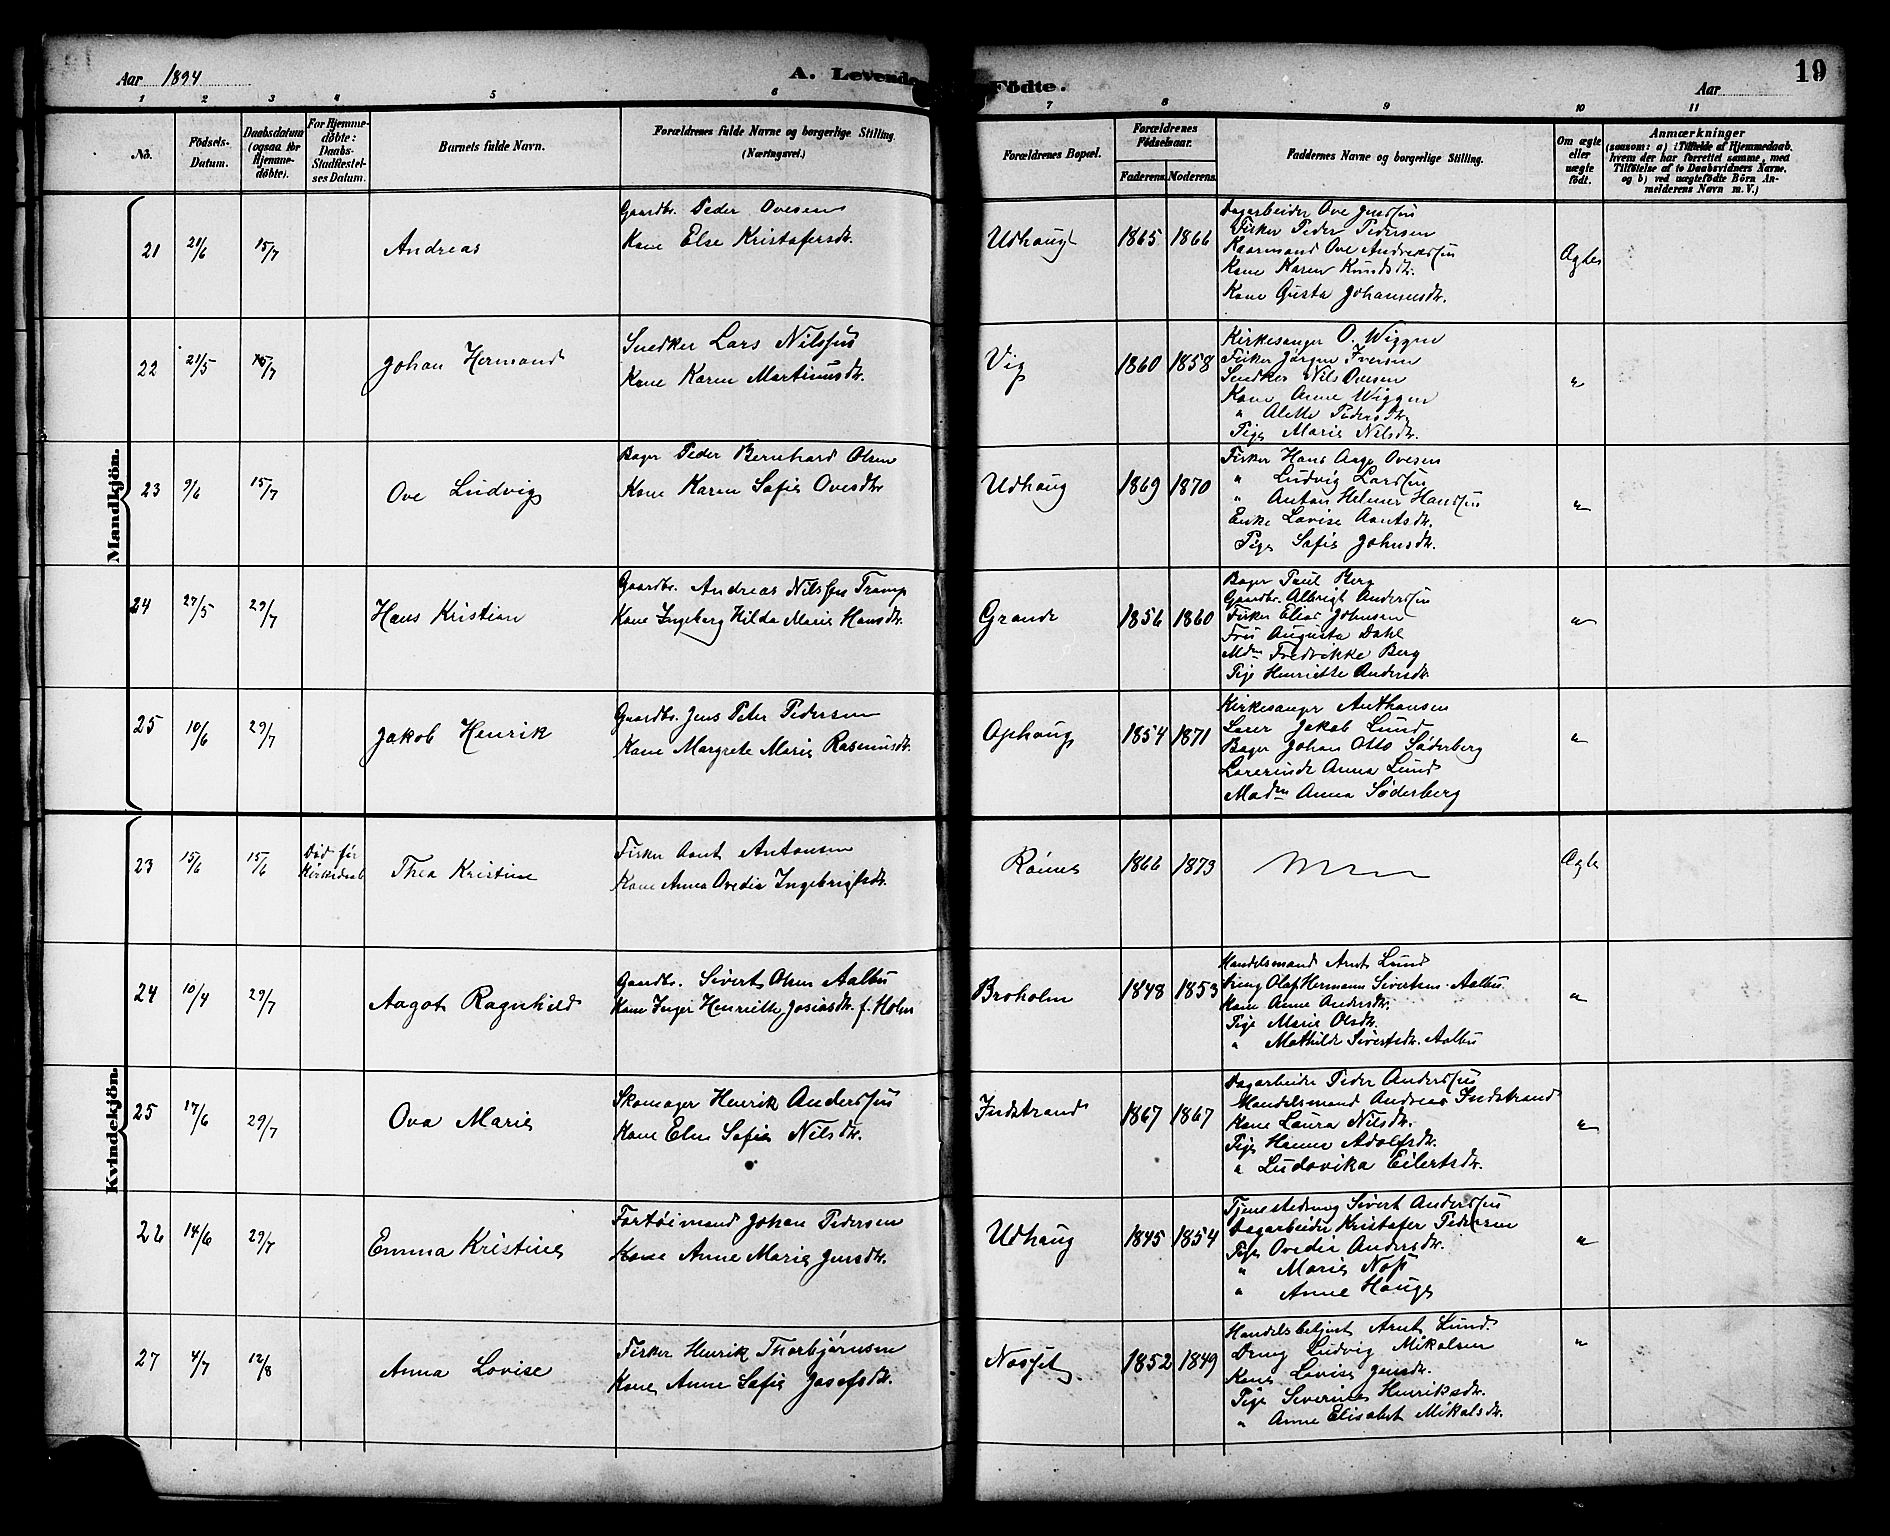 Aar 1894
A. Levende Födte.
Aar
19
1 2 3 4 5 6 7 8 9 10 11
No.
Födsels-Datum.
Daabsdatum (ogsaa for Hjemmedöbte).
For Hjemmedöbte: Daabs-Stadfestelses Datum.
Barnets fulde Navn.
Forældrenes fulde Navne og borgerlige Stilling. (Næringsvei.)
Forældrenes Bopæl.
Forældrenes Födselsaar.
Faderens. Moderens.
Faddernes Navne og borgerlige Stilling.
Om ægte eller uægte födt.
Anmærkninger
(saasom: a) i Tilfælde af Hjemmedaab, hvem der har forrettet samme, med Tilföielse af to Daabsvidners Navne, og b) ved uægtefödte Börn Anmelderens Navn m. V.)
Mandkjön.
21 21/6 15/7 Andreas
Gaardbr. Peder Ovesen
Kone Else Kristofersdr.
Udhaug 1865 1866
Dagarbeider Ove Jensen
Fisker Peder Pedersen
Kaarmand Ove Andreassen
Kone Karen Knudsdr.
Kone Gusta Johannesdr.
Ægte
22 21/5 15/7 Johan Hermand
Snedker Lars Nilssen
Kone Karen Martinusdr.
Vig 1860 1858
Kirkesanger O. Wiggen
Fisker Jørgen Iversen
Snedker Nils Ovesen
Kone Anne Wiggen
" Alette Pedersdr.
Pige Marie Nilsdr.
"
23 9/6 15/7 Ove Ludvig
Bager Peder Bernhard Olsen
Kone Karen Sofie Ovesdtr
Udhaug 1869 1870
Fisker Hans Aage Ovesen
" Ludvig Larssen
" Anton Helmer Hanssen
Enke Lovise Arntsdr.
Pige Sofie Johnsdr.
"
24 27/5 29/7 Hans Kristian
Gaardbr. Andreas Nilssen Tramp
Kone Ingeborg Hilda Marie Hansdr.
Grande 1856 1860
Bager Paul Berg
Gaardbr. Albrigt Anderssen
Fisker Elias Johnsen
Fru Augusta Dahl
Mdm Fredrikke Berg
Pige Henriette Andersdr
"
25 10/6 29/7 Jakob Henrik
Gaardbr. Jens Peter Pedersen
Kone Margrete Marie Rasmusdr.
Ophaug 1854 1871
Kirkesanger Anthonsen
Lærer Jakob Lund
Bager Johan Otto Söderberg
Lærerinde Anna Lund
Madm Anna Söderberg
"
Kvindekjön.
23 15/6 15/6 Död før Kirkedaab Thea Kristine
Fisker Arnt Antonsen
Kone Anna Ovedia Ingebrigtsdr.
Rømes 1866 1873
Ægte
24 10/4 29/7 Aagot Ragnhild
Gaardbr. Sivert Olsen Aalbu
Kone Inger Henriette Josiasdr. f. Holm
Broholm 1848 1853
Handelsmand Arnt Lund
Dreng Olaf Hermann Sivertsen Aalbu
Kone Anne Andersdr.
Pige Marie Olsdr.
" Mathilde Sivertsdr. Aalbu
"
25 17/6 29/7 Ova Marie
Skomager Henrik Anderssen
Kone Elen Sofie Nilsdr.
Indstrand 1867 1867
Dagarbeider Peder Anderssen
Handelsmand Andreas Indstrand
Kone Laura Nilsdr.
Pige Hanna Adolfsdr.
" Ludovika Eilertsdr.
"
26 14/6 29/7 Emma Kristine
Fortöimand Johan Pedersen
Kone Anne Marie Jensdr.
Udhaug 1845 1854
Tjenestedreng Sivert Anderssen
Dagarbeider Kristofer Pedersen
Pige Ovedie Andersdr.
" Marie
" Anne Hauge
"
27 4/7 12/8 Anna Lovise
Fisker Henrik Thorbjørnsen
Kone Anne Sofie Josefsdr.
1852 1849
Handelsbetjent Arnt Lund
Dreng Ludvig Mikalsen
Kone Lovise Jensdr.
Pige Severine Henriksdr.
" Anne Elisabet Mikalsdr.
"